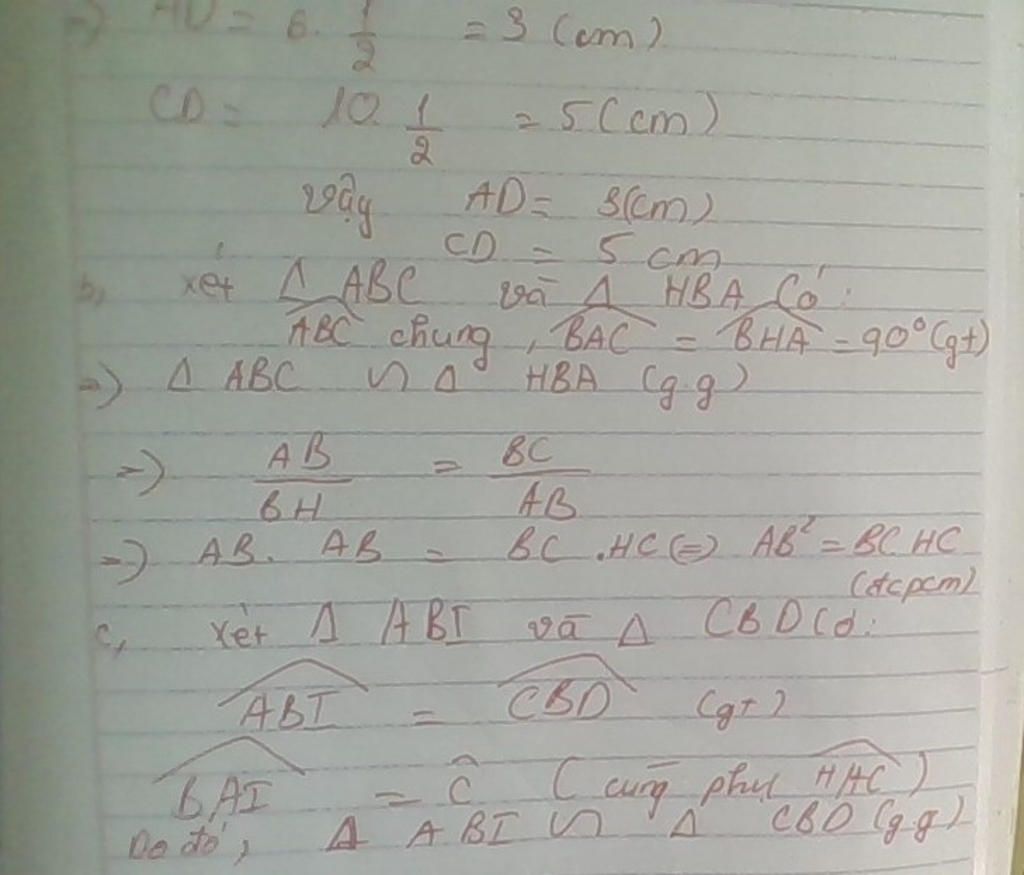 => AD = 6. 1/2 = 3 (cm)
CD = 10. 1/2 = 5 (cm)
vậy AD = 3(cm)
CD = 5 cm
b, xét Δ ABC và Δ HBA Có:
ABC chung, BAC = BHA = 90° (gt)
=> Δ ABC ∽ Δ HBA (g.g)
=> AB/BH = BC/AB
=> AB. AB = BC .HC <=> AB² = BC HC
(đcpcm)
c, xét Δ ABI và Δ CBD Có:
ABI = CBD (gt)
BAI = Ĉ (cùng phụ HAC)
Do đó, Δ ABI ∽ Δ CBD (g.g)